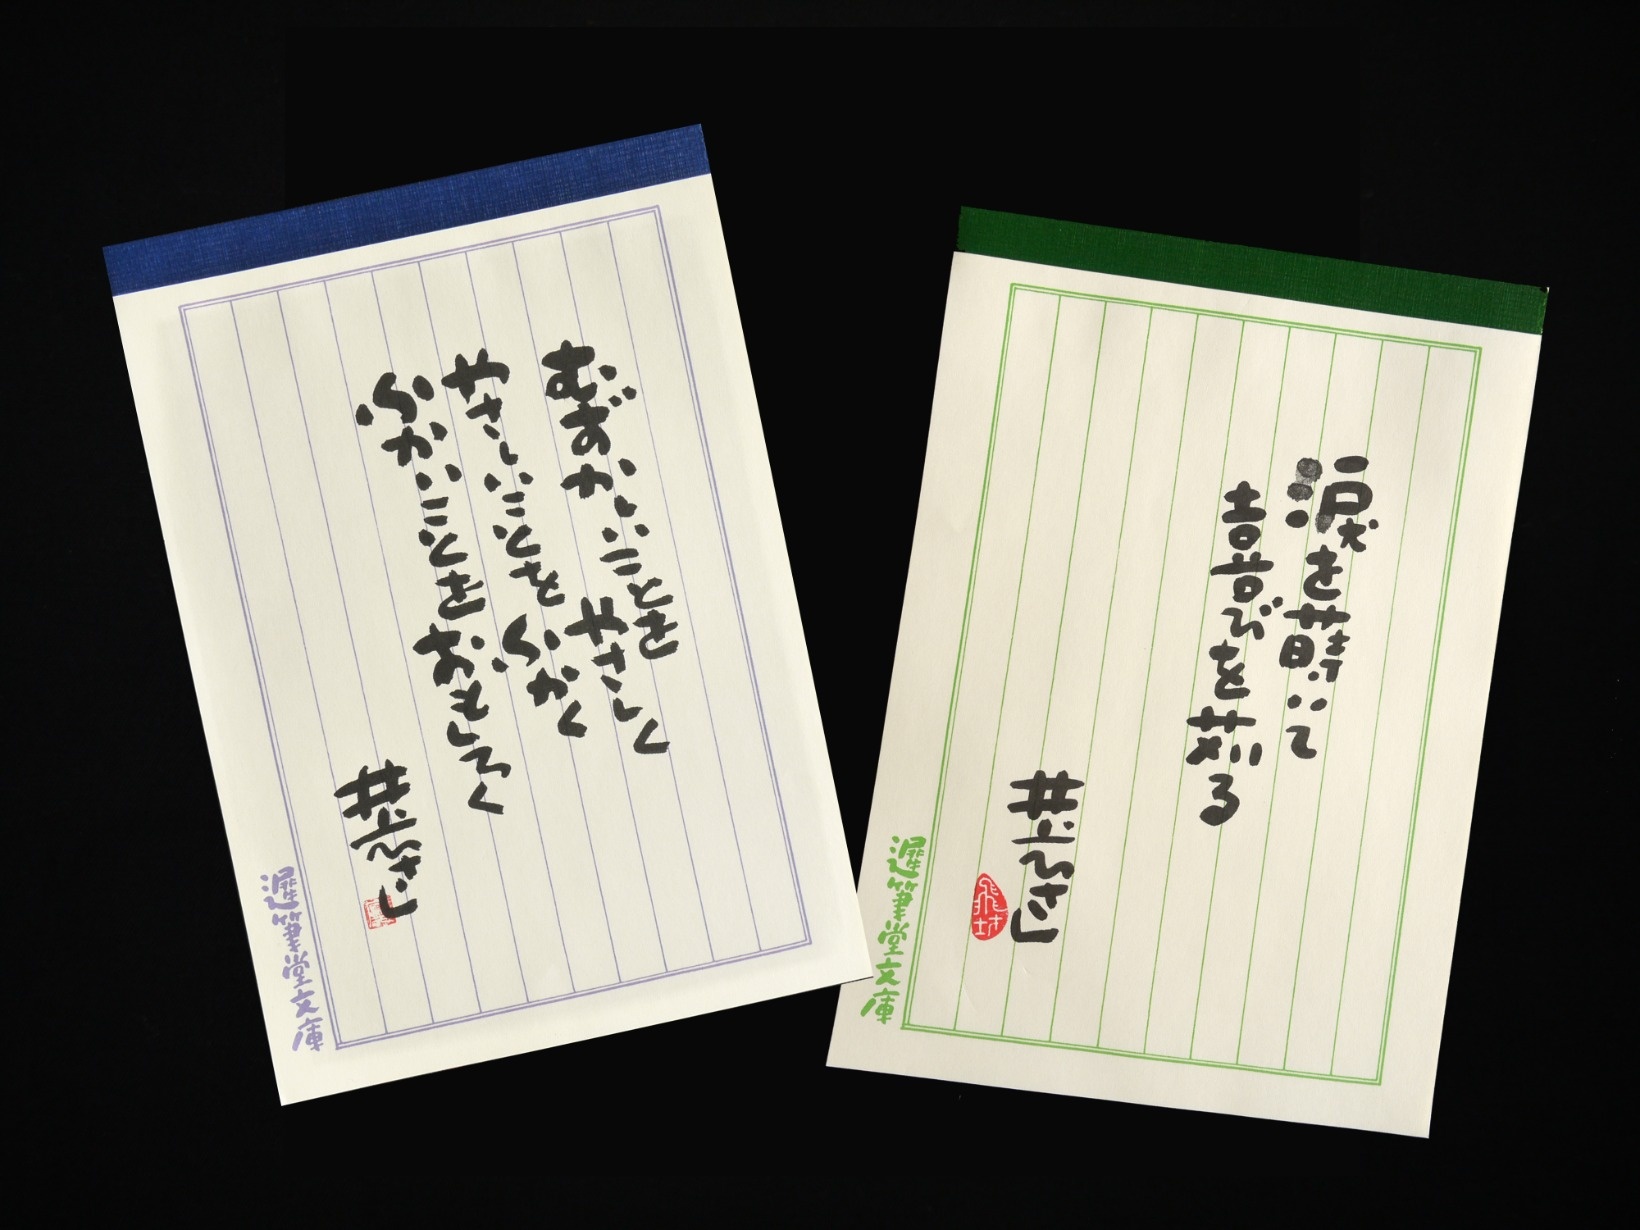 むずかしいことを やさしく
やさしいことを ふかく
ふかいことを おもしろく
井上ひさし
遲筆堂文庫
涙を蒔いて
喜びを苅る
井上ひさし
飛坊
遲筆堂文庫